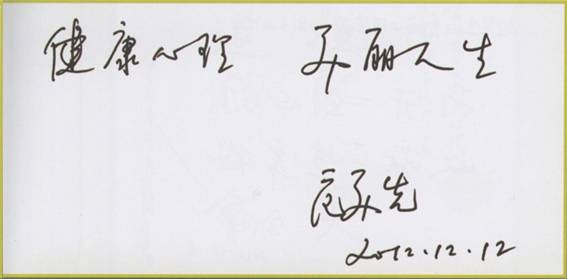 健康心理 美丽人生
美先
2012.12.12